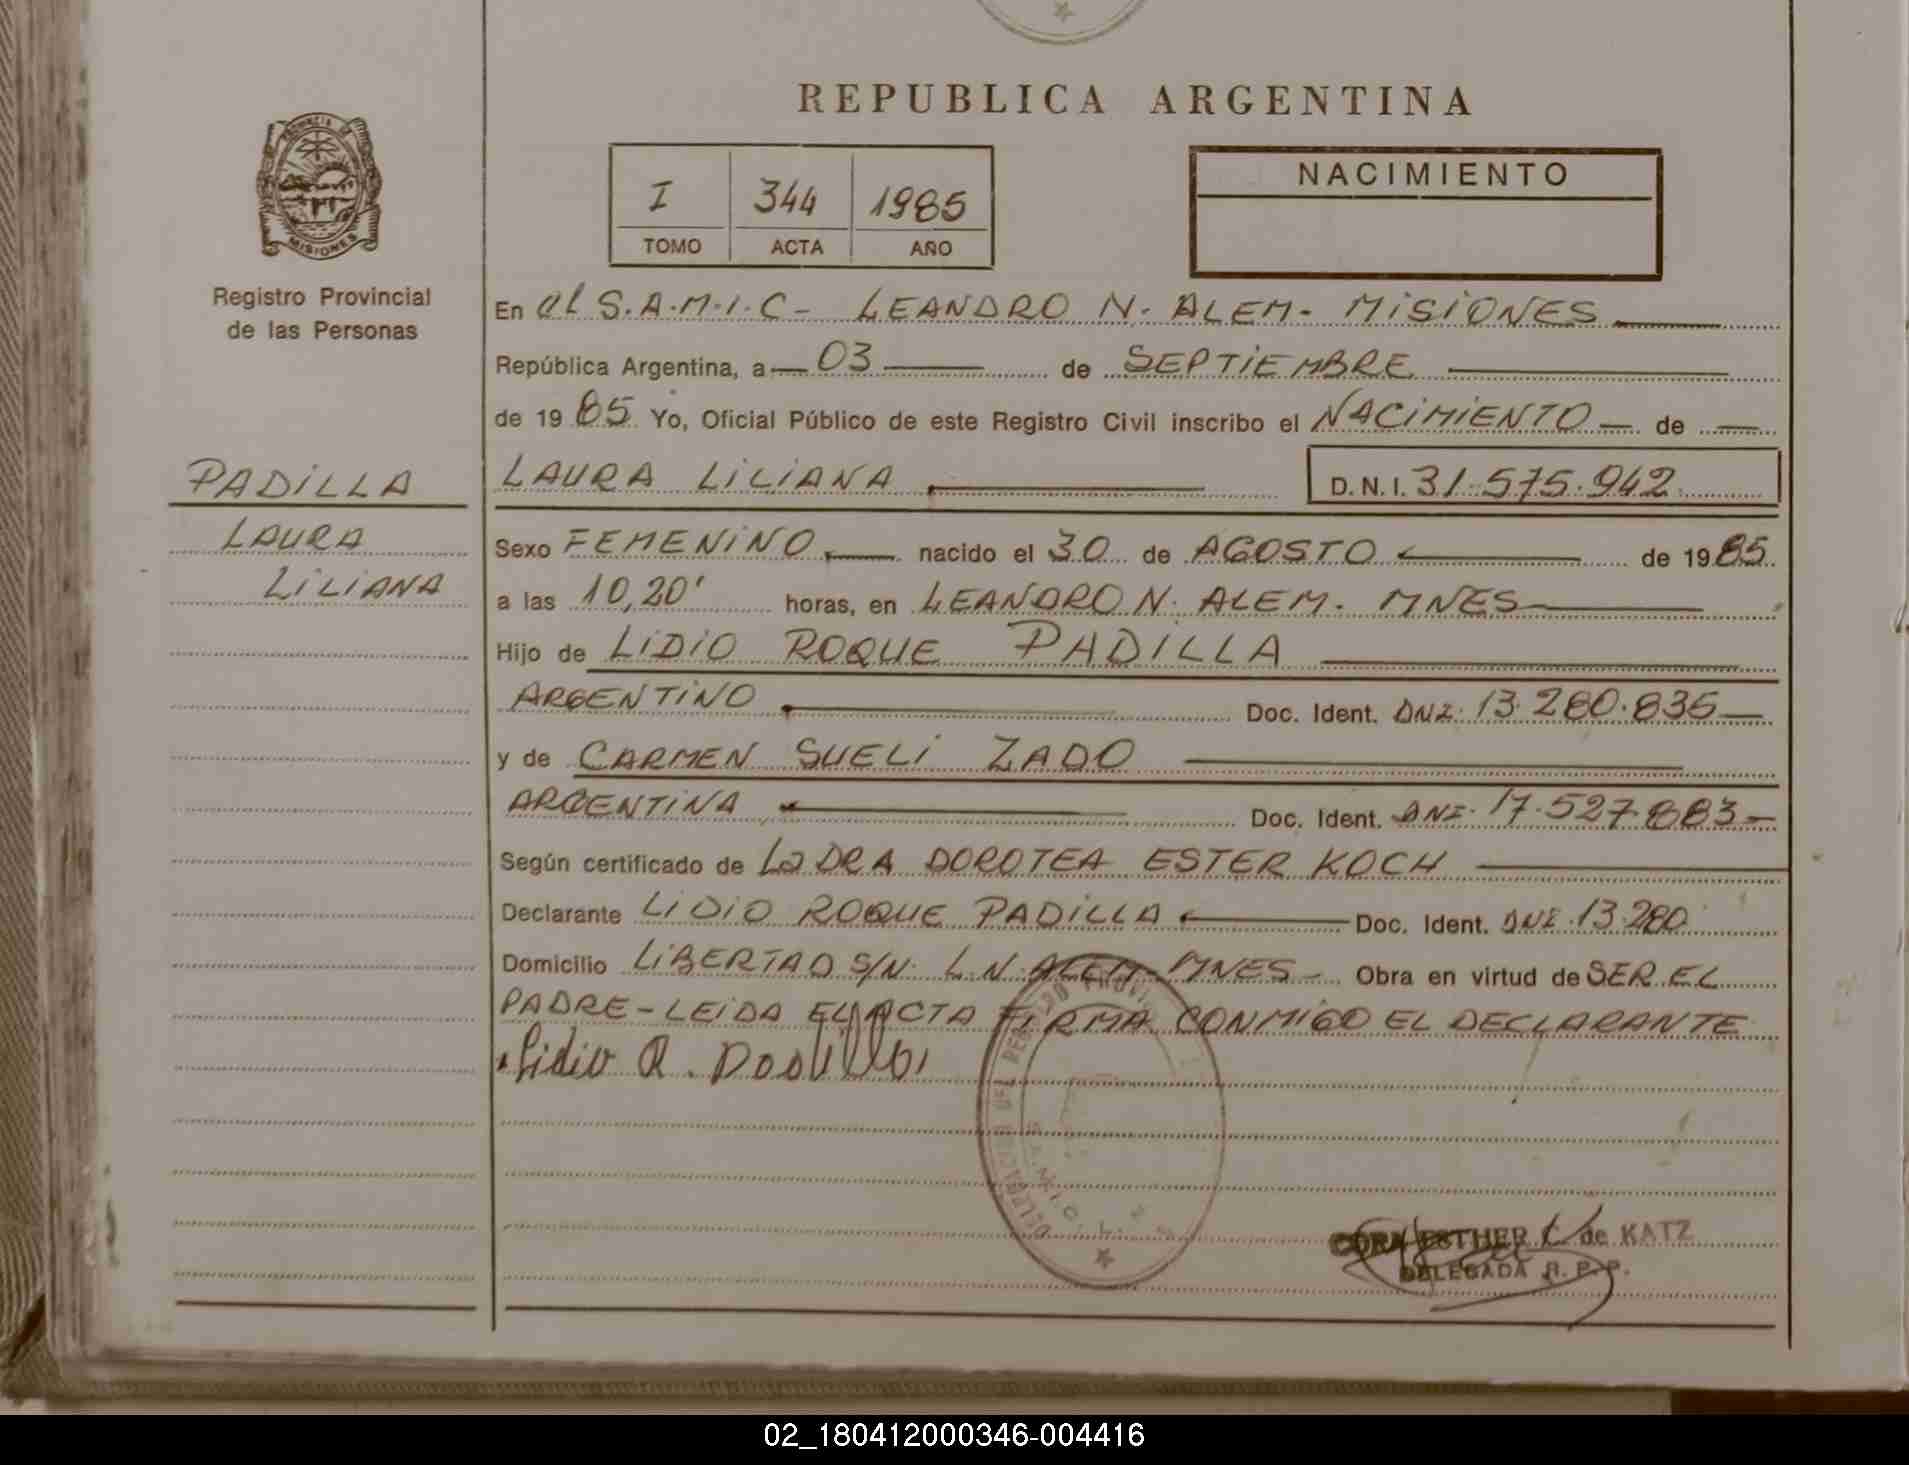 REPUBLICA ARGENTINA
PROVINCIA DE
MISIONES
Registro Provincial
de las Personas
I 344 1985
TOMO ACTA AÑO
NACIMIENTO
En el S.A.M.I.C- LEANDRO N. ALEM- MISIONES
República Argentina, a 03 de SEPTIEMBRE
de 1985 Yo, Oficial Público de este Registro Civil inscribo el NACIMIENTO de
PADILLA
LAURA LILIANA D.N.I. 31.575.942
LAURA
LILIANA
Sexo FEMENINO nacido el 30 de AGOSTO de 1985
a las 10,20' horas, en LEANDRO N. ALEM. MNES
Hijo de LIDIO ROQUE PADILLA
ARGENTINO Doc. Ident. DNI. 13.280.835
y de CARMEN SUELI ZADO
ARGENTINA Doc. Ident. DNI. 17.527.883
Según certificado de La DRA DOROTEA ESTER KOCH
Declarante LIDIO ROQUE PADILLA Doc. Ident. DNI. 13.280
Domicilio LIBERTAD S/N. L.N. ALEM- MNES- Obra en virtud de SER EL
PADRE-LEIDA EL ACTA FIRMA CONMIGO EL DECLARANTE
Lidio R. Padilla
CORA ESTHER C. de KATZ
DELEGADA R. P. P.
02_180412000346-004416